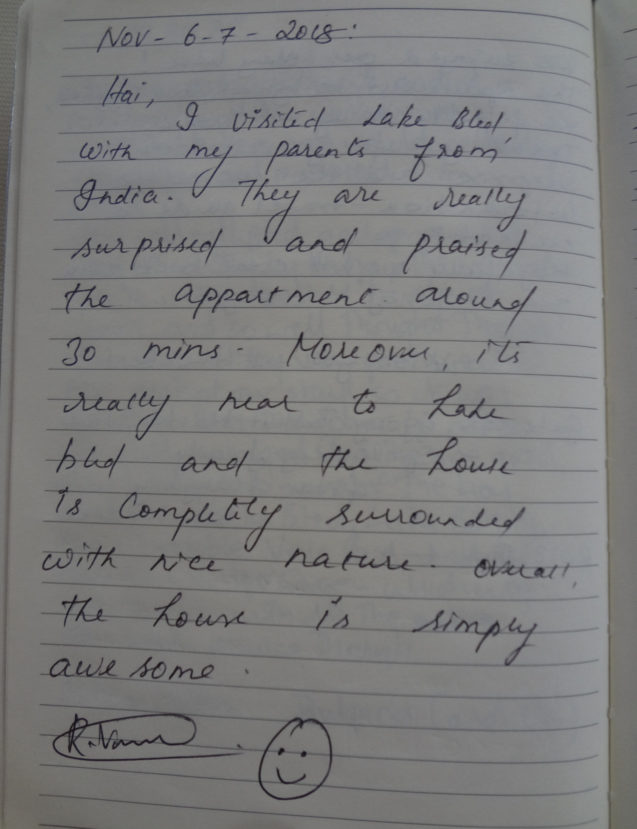 Nov - 6-7 - 2018:
Hai,
I visited Lake Bled,
with my parents from
India. They are really
surprised and praised
the appartment around
30 mins. Moreover, its
really near to Lake
bled and the house
is Completily surrounded
with nice nature. Overall,
the house is simply
awesome.